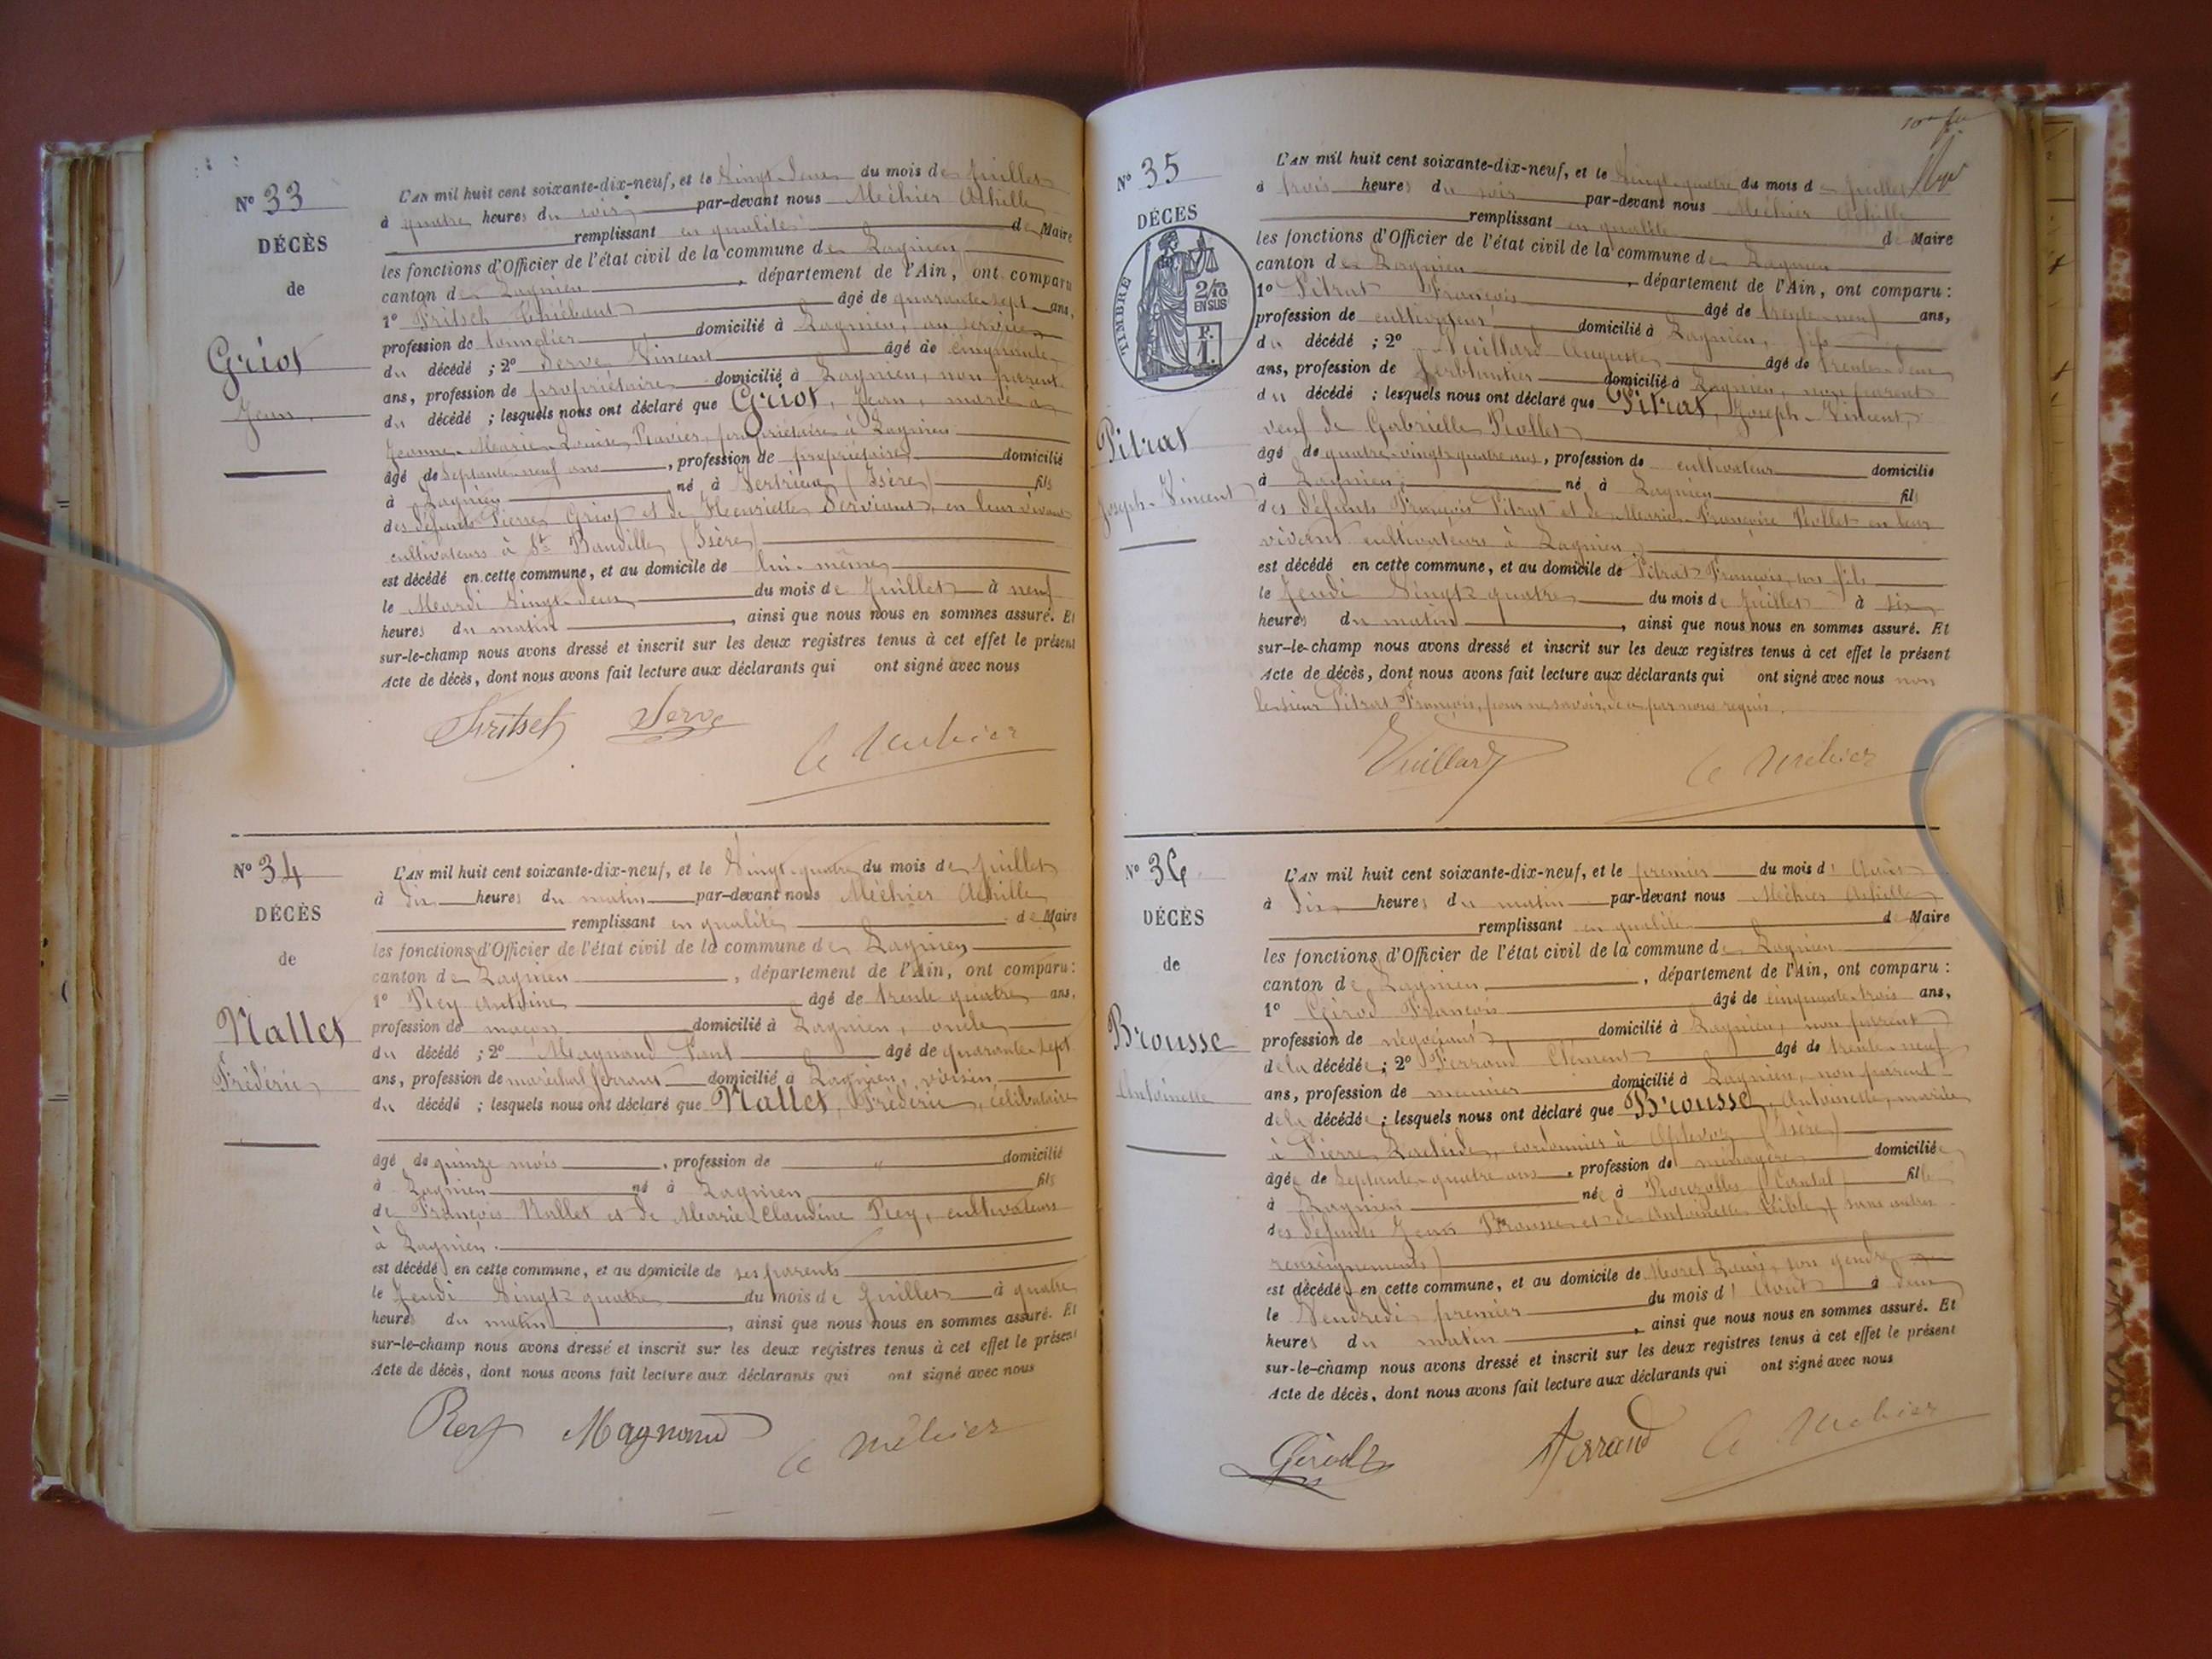 N° 33
DÉCÈS
de
Griot
Jean
L'AN mil huit cent soixante-dix-neuf, et le Vingt-deux du mois de Juillet
à quatre heures du soir par-devant nous Méhier Achille
remplissant en qualité de Maire
les fonctions d'Officier de l'état civil de la commune de Lagnieu
canton de Lagnieu, département de l'Ain, ont comparu
1° Fritsch Thiébaut âgé de quarante-sept ans,
profession de tonnelier domicilié à Lagnieu, au service
du décédé ; 2° Serve Vincent âgé de cinquante
ans, profession de propriétaire domicilié à Lagnieu, non parent
du décédé ; lesquels nous ont déclaré que Griot, Jean, marié à
Jeanne-Marie-Louise Ravier, propriétaire à Lagnieu
âgé de septante-neuf ans, profession de propriétaire domicilié
à Lagnieu né à Vertrieu (Isère) fils
des défunts Pierre Griot et de Henriette Serviant, en leur vivant
cultivateurs à St Baudille (Isère)
est décédé en cette commune, et au domicile de lui-même
le Mardi Vingt-deux du mois de Juillet à neuf
heures du matin, ainsi que nous nous en sommes assuré. Et
sur-le-champ nous avons dressé et inscrit sur les deux registres tenus à cet effet le présent
Acte de décès, dont nous avons fait lecture aux déclarants qui ont signé avec nous
Fritsch Serve A Méhier
N° 34
DÉCÈS
de
Nallet
Frédéric
L'AN mil huit cent soixante-dix-neuf, et le Vingt-quatre du mois de Juillet
à dix heures du matin par-devant nous Méhier Achille
remplissant en qualité de Maire
les fonctions d'Officier de l'état civil de la commune de Lagnieu
canton de Lagnieu, département de l'Ain, ont comparu :
1° Rey Antoine âgé de trente quatre ans,
profession de maçon domicilié à Lagnieu, oncle
du décédé ; 2° Magnand Paul âgé de quarante-sept
ans, profession de maréchal ferrant domicilié à Lagnieu, voisin
du décédé ; lesquels nous ont déclaré que Nallet, Frédéric, célibataire
âgé de quinze mois, profession de " domicilié
à Lagnieu né à Lagnieu fils
de François Nallet et de Marie-Claudine Rey, cultivateurs
à Lagnieu.
est décédé en cette commune, et au domicile de ses parents
le Jeudi Vingt-quatre du mois de Juillet à quatre
heures du matin, ainsi que nous nous en sommes assuré. Et
sur-le-champ nous avons dressé et inscrit sur les deux registres tenus à cet effet le présent
Acte de décès, dont nous avons fait lecture aux déclarants qui ont signé avec nous
Rey Magnand A Méhier
N° 35
DÉCÈS
TIMBRE
2/10
EN SUS
F.
1.
Pitrat
Joseph-Vincent
L'AN mil huit cent soixante-dix-neuf, et le Vingt-quatre du mois de Juillet
à trois heures du soir par-devant nous Méhier Achille
remplissant en qualité de Maire
les fonctions d'Officier de l'état civil de la commune de Lagnieu
canton de Lagnieu, département de l'Ain, ont comparu :
1° Pitrat François âgé de trente-neuf ans,
profession de cultivateur domicilié à Lagnieu, fils
du décédé ; 2° Vuillard Auguste âgé de trente-deux
ans, profession de ferblantier domicilié à Lagnieu, non parent
du décédé ; lesquels nous ont déclaré que Pitrat, Joseph-Vincent,
veuf de Gabrielle Rollet
âgé de quatre-vingt-quatre ans, profession de cultivateur domicilié
à Lagnieu, né à Lagnieu fils
des défunts François Pitrat et de Marie-Françoise Rollet en leur
vivant cultivateurs à Lagnieu
est décédé en cette commune, et au domicile de Pitrat François, son fils
le Jeudi Vingt-quatre du mois de Juillet à six
heures du matin, ainsi que nous nous en sommes assuré. Et
sur-le-champ nous avons dressé et inscrit sur les deux registres tenus à cet effet le présent
Acte de décès, dont nous avons fait lecture aux déclarants qui ont signé avec nous non
le sieur Pitrat François, pour ne savoir, de ce par nous requis.
Vuillard A Méhier
N° 36
DÉCÈS
de
Brousse
Antoinette
L'AN mil huit cent soixante-dix-neuf, et le premier du mois d'Août
à dix heures du matin par-devant nous Méhier Achille
remplissant en qualité de Maire
les fonctions d'Officier de l'état civil de la commune de Lagnieu
canton de Lagnieu, département de l'Ain, ont comparu :
1° Girod François âgé de cinquante-trois ans,
profession de négociant domicilié à Lagnieu, non parent
de la décédée ; 2° Ferrand Clément âgé de trente-neuf
ans, profession de meunier domicilié à Lagnieu, non parent
de la décédée ; lesquels nous ont déclaré que Brousse, Antoinette, mariée
à Pierre, cordonnier à Optevoz (Isère)
âgée de septante-quatre ans, profession de ménagère domiciliée
à Lagnieu née à (Cantal) fille
des défunts Jean Brousse et de Antoinette (sans autres
renseignements)
est décédée en cette commune, et au domicile de Morel, son gendre
le Vendredi premier du mois d'Août à deux
heures du matin, ainsi que nous nous en sommes assuré. Et
sur-le-champ nous avons dressé et inscrit sur les deux registres tenus à cet effet le présent
Acte de décès, dont nous avons fait lecture aux déclarants qui ont signé avec nous
Girod Ferrand A Méhier